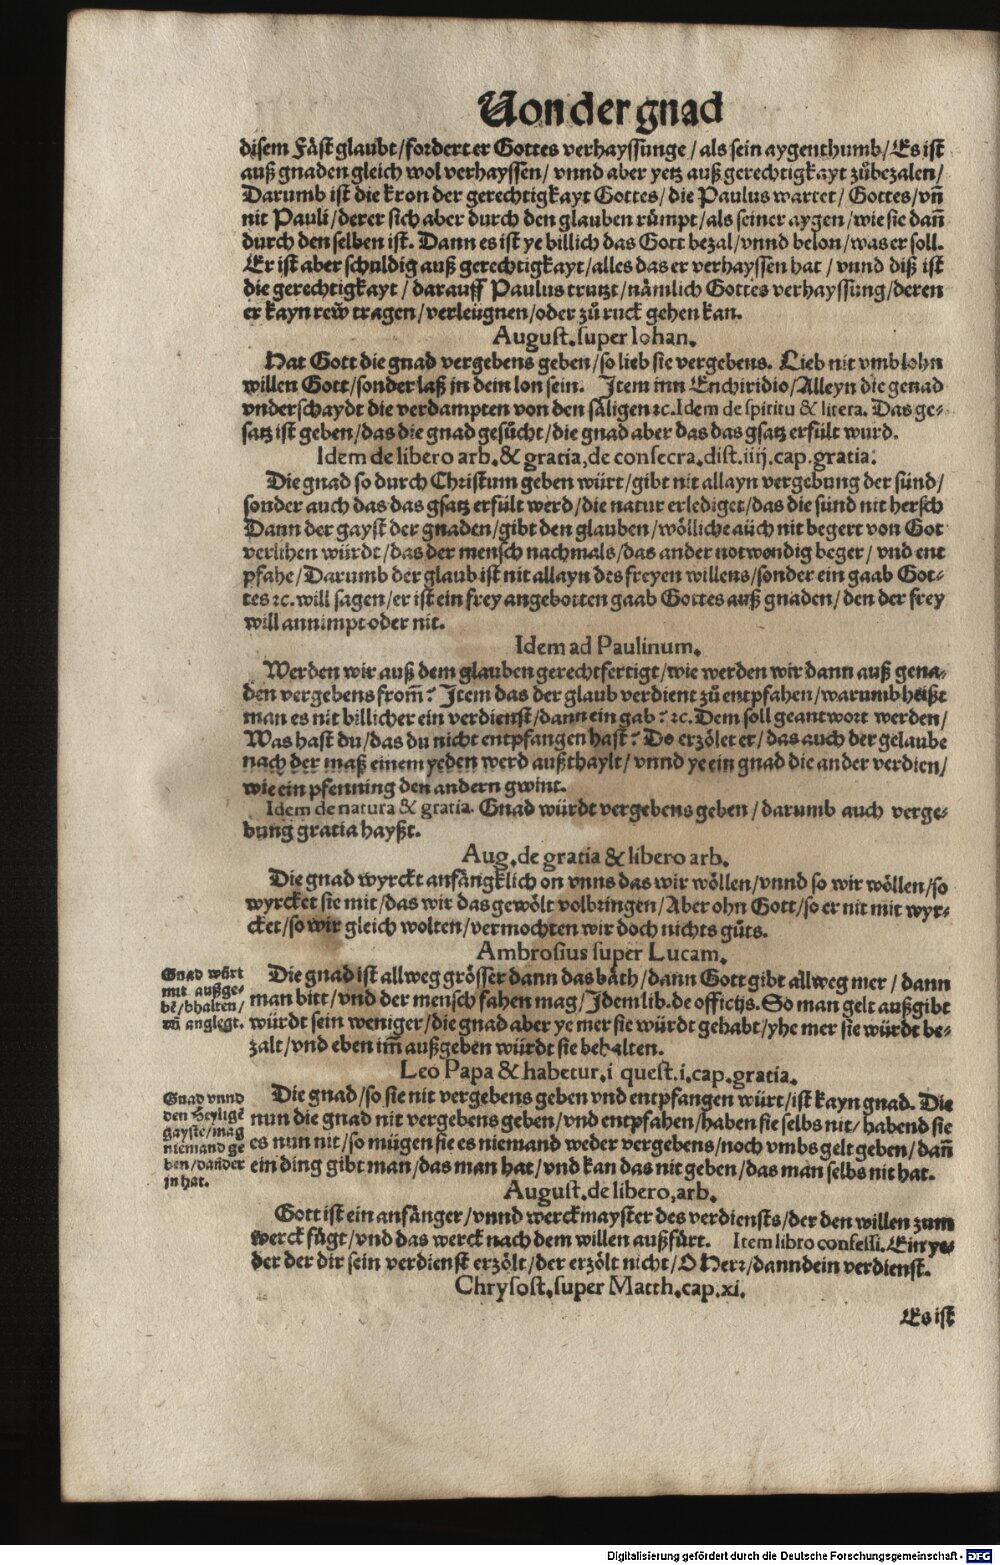 Von der gnad
disem Fäst glaubt/fordert er Gottes verhayssunge/als sein aygenthumb/Es ist
auß gnaden gleich wol verhayssen/vnnd aber yetz auß gerechtigkayt zůbezalen/
Darumb ist die kron der gerechtigkayt Gottes/die Paulus wartet/Gottes/vñ
nit Pauli/derer sich aber durch den glauben růmpt/als seiner aygen/wie sie dañ
durch den selben ist. Dann es ist ye billich das Gott bezal/vnnd belon/was er soll.
Er ist aber schuldig auß gerechtigkayt/alles das er verhayssen hat/vnnd diß ist
die gerechtigkayt/darauff Paulus trutzt/nämlich Gottes verhayssung/deren
er kayn rew tragen/verleügnen/oder zů ruck gehen kan.
August. super Iohan.
Hat Gott die gnad vergebens geben/so lieb sie vergebens. Lieb nit vmb lohn
willen Gott/sonder laß in dein lon sein. Item inn Enchiridio/Alleyn die genad
vnderschaydt die verdampten von den säligen ꝛc. Idem de spiritu & litera. Das ge-
satz ist geben/das die gnad gesůcht/die gnad aber das das gsatz erfült wurd.
Idem de libero arb. & gratia, de consecra. dist. iiij. cap. gratia:
Die gnad so durch Christum geben würt/gibt nit allayn vergebung der sünd/
sonder auch das das gsatz erfült werd/die natur erlediget/das die sünd nit hersch
Dann der gayst der gnaden/gibt den glauben/wölliche auch nit begert von Got
verlihen würdt/das der mensch nachmals/das ander notwendig beger/vnd ent
pfahe/Darumb der glaub ist nit allayn des freyen willens/sonder ein gaab Got-
tes ꝛc. will sagen/er ist ein frey angebotten gaab Gottes auß gnaden/den der frey
will annimpt oder nit.
Idem ad Paulinum.
Werden wir auß dem glauben gerechtfertigt/wie werden wir dann auß gena-
den vergebens from̃? Item das der glaub verdient zů entpfahen/warumb heißt
man es nit billicher ein verdienst/dann ein gab? ꝛc. Dem soll geantwort werden/
Was hast du/das du nicht entpfangen hast? Do erzölet er/das auch der gelaube
nach der maß einem yeden werd außthaylt/vnnd ye ein gnad die ander verdien/
wie ein pfenning den andern gwint.
Idem de natura & gratia. Gnad würdt vergebens geben/darumb auch verge-
bung gratia hayßt.
Aug. de gratia & libero arb.
Die gnad wyrckt anfängklich on vnns das wir wöllen/vnnd so wir wöllen/so
wyrcket sie mit/das wir das gewölt volbringen/Aber ohn Gott/so er nit mit wyr-
cket/so wir gleich wolten/vermochten wir doch nichts gůts.
Ambrosius super Lucam.
Gnad würt
mit außge-
bẽ/bhalten/
vñ anglegt.
Die gnad ist allweg grösser dann das bäth/dann Gott gibt allweg mer/dann
man bitt/vnd der mensch fahen mag/Idem lib. de officijs. So man gelt außgibt
würdt sein weniger/die gnad aber ye mer sie würdt gehabt/yhe mer sie würdt be-
zalt/vnd eben im̃ außgeben würdt sie behalten.
Leo Papa & habetur. i quest. i. cap. gratia.
Gnad vnnd
den Heyligẽ
gayste/mag
niemand ge
ben/dañ der
jn hat.
Die gnad/so sie nit vergebens geben vnd entpfangen würt/ist kayn gnad. Die
nun die gnad nit vergebens geben/vnd entpfahen/haben sie selbs nit/habend sie
es nun nit/so mügen sie es niemand weder vergebens/noch vmbs gelt geben/dañ
ein ding gibt man/das man hat/vnd kan das nit geben/das man selbs nit hat.
August. de libero, arb.
Gott ist ein anfänger/vnnd werckmayster des verdiensts/der den willen zum
werck fügt/vnd das werck nach dem willen außfürt. Item libro confessi. Ein ye-
der der dir sein verdienst erzölt/der erzölt nicht/O Herr/dann dein verdienst.
Chrysost. super Matth. cap. xi.
Es ist
Digitalisierung gefördert durch die Deutsche Forschungsgemeinschaft - DFG